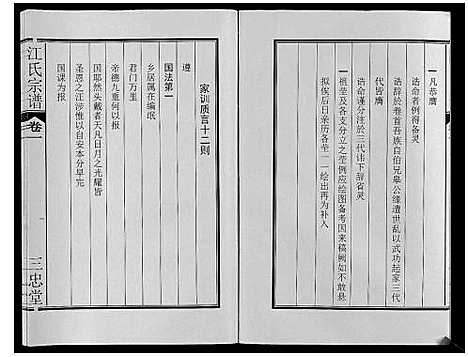 一凡恭膺
诰命者例得备灵
诰辞于卷首吾族自伯兄皋公缘遭世乱以武功起家三代
代皆膺
诰命谨分注于三代讳下辞省灵
一祖茔及各支分立之茔例应绘图备考因来稿阙如不敢悬
拟俟后日亲历各茔一一绘出再为补入
家训质言十二则
遵
国法第一
乡居属在编氓
君门万里
帝德九重何以报
国耶然头戴者天凡日月之光耀皆
圣恩之汪涉惟以自安本分早完
国课为报
江氏宗谱
卷一
三忠堂